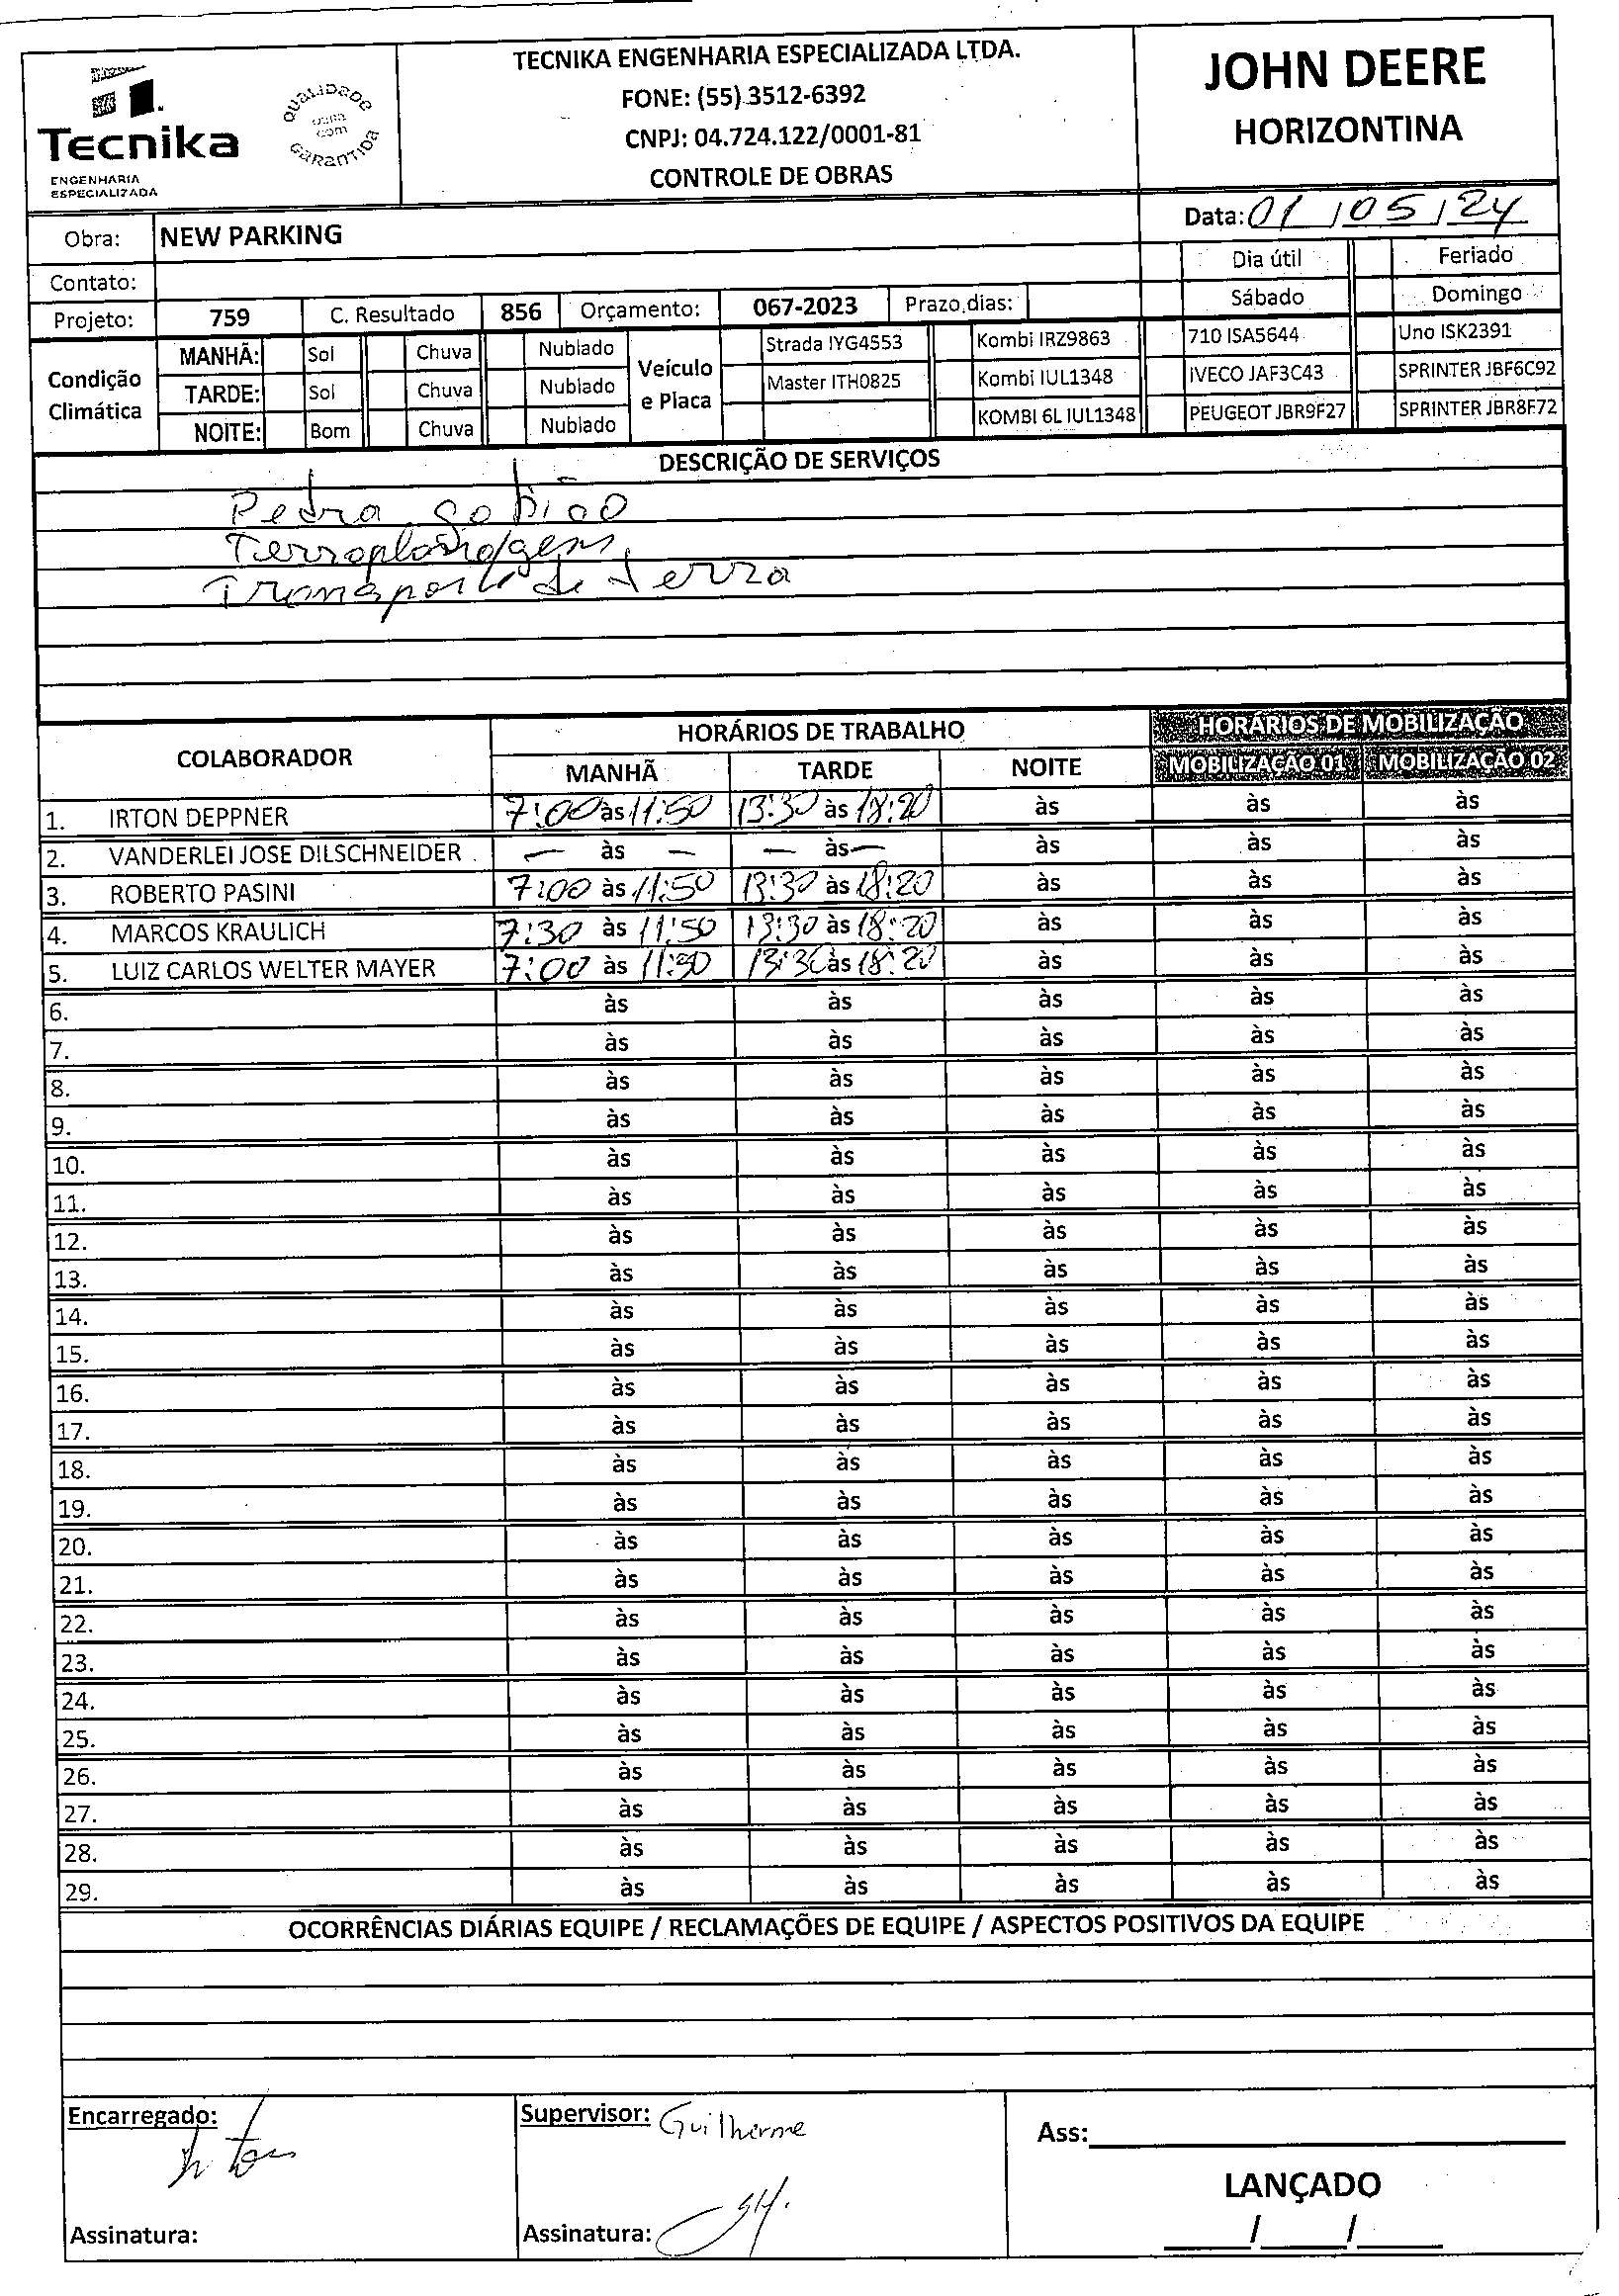 TECNIKA ENGENHARIA ESPECIALIZADA LTDA.
FONE: (55) 3512-6392
CNPJ: 04.724.122/0001-81
CONTROLE DE OBRAS
JOHN DEERE
HORIZONTINA
Tecnika
ENGENHARIA
ESPECIALIZADA
QUALIDADE
COM
GARANTIDA
Data: 01/05/24
Obra: NEW PARKING
Dia útil Feriado
Contato:
Sábado Domingo
Projeto: 759 C. Resultado 856 Orçamento: 067-2023 Prazo,dias:
Condição Climática
MANHÃ: Sol Chuva Nublado
TARDE: Sol Chuva Nublado
NOITE: Bom Chuva Nublado
Veículo e Placa
Strada IYG4553 Kombi IRZ9863 710 ISA5644 Uno ISK2391
Master ITH0825 Kombi IUL1348 IVECO JAF3C43 SPRINTER JBF6C92
KOMBI 6L IUL1348 PEUGEOT JBR9F27 SPRINTER JBR8F72
DESCRIÇÃO DE SERVIÇOS
Pedra gabião
Terroplanagem
Transporte de terra
COLABORADOR HORÁRIOS DE TRABALHO HORÁRIOS DE MOBILIZAÇÃO
MANHÃ TARDE NOITE MOBILIZAÇÃO 01 MOBILIZAÇÃO 02
1. IRTON DEPPNER 7:00 às 11:50 13:30 às 18:20 às às às
2. VANDERLEI JOSE DILSCHNEIDER — às — — às — às às às
3. ROBERTO PASINI 7:00 às 11:50 13:30 às 18:20 às às às
4. MARCOS KRAULICH 7:30 às 11:50 13:30 às 18:20 às às às
5. LUIZ CARLOS WELTER MAYER 7:00 às 11:50 13:30 às 18:20 às às às
6. às às às às às
7. às às às às às
8. às às às às às
9. às às às às às
10. às às às às às
11. às às às às às
12. às às às às às
13. às às às às às
14. às às às às às
15. às às às às às
16. às às às às às
17. às às às às às
18. às às às às às
19. às às às às às
20. às às às às às
21. às às às às às
22. às às às às às
23. às às às às às
24. às às às às às
25. às às às às às
26. às às às às às
27. às às às às às
28. às às às às às
29. às às às às às
OCORRÊNCIAS DIÁRIAS EQUIPE / RECLAMAÇÕES DE EQUIPE / ASPECTOS POSITIVOS DA EQUIPE
Encarregado:
Supervisor: Guilherme
Ass:
LANÇADO
Assinatura:
Assinatura:
/ /